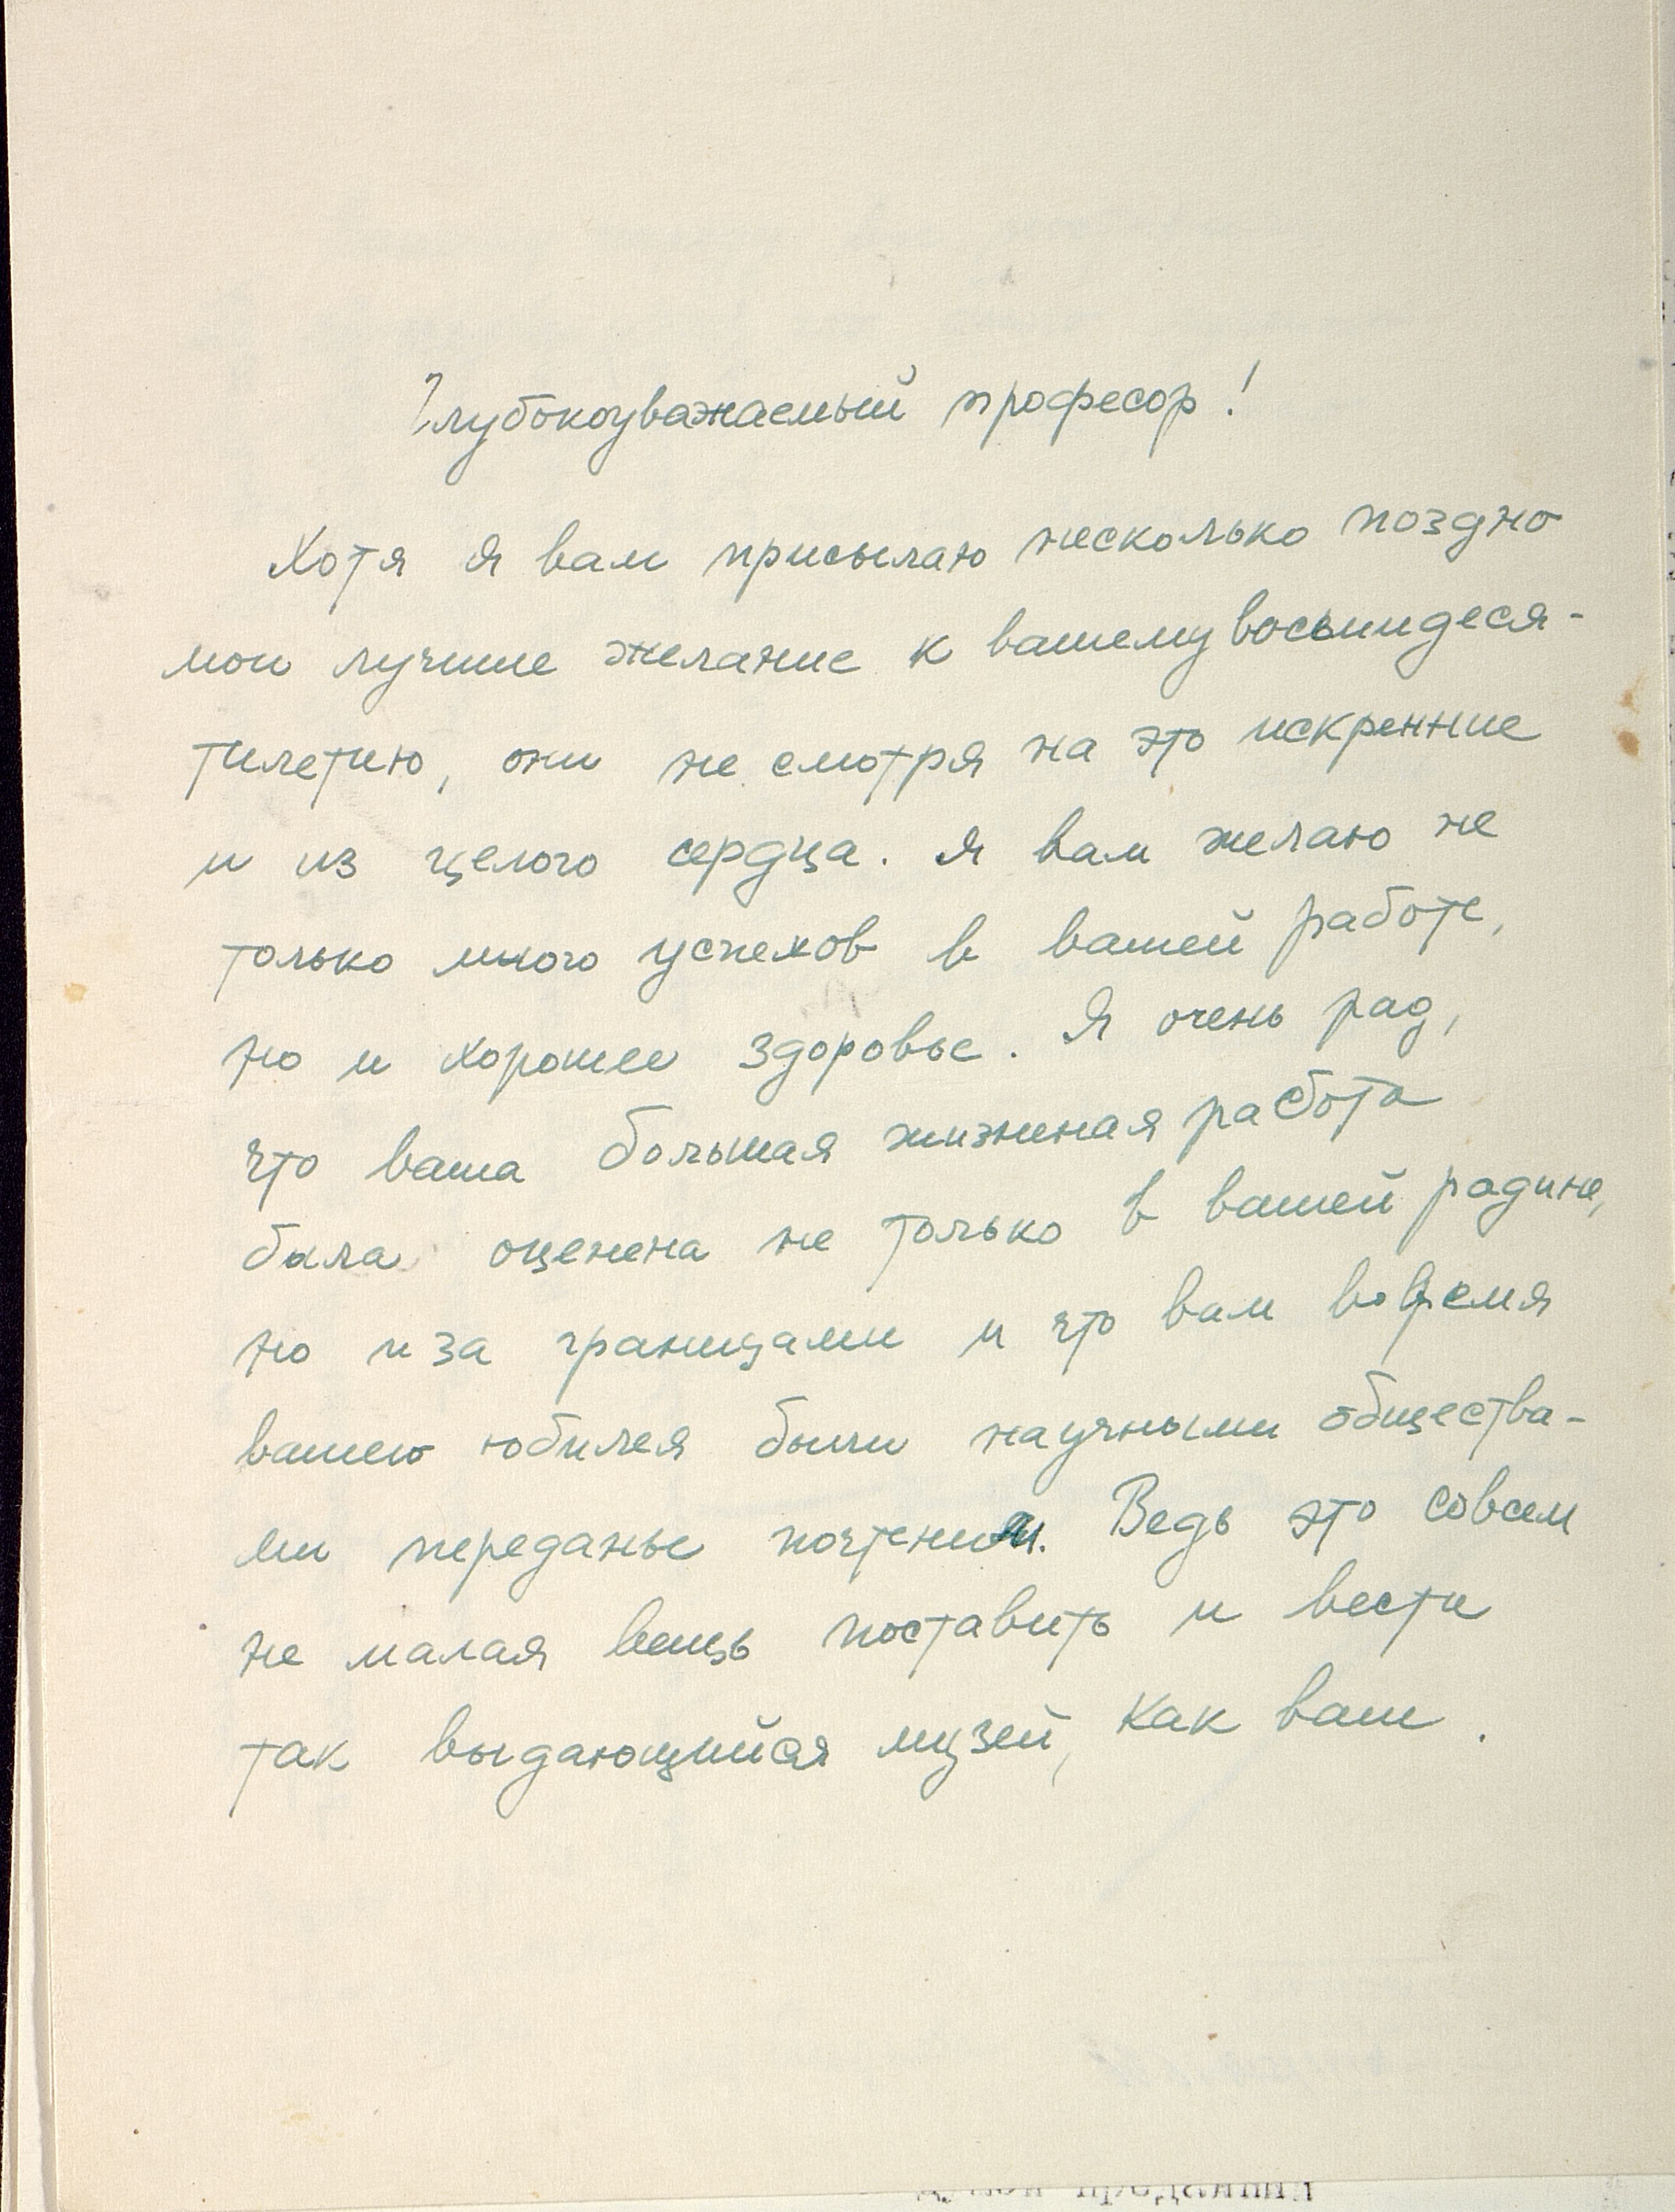 Глубокоуважаемый професор!
Хотя я вам присылаю несколько поздно
мои лучшие желание к вашему восьмидеся-
тилетию, они не смотря на это искренние
и из целого сердца. Я вам желаю не
только много успехов в вашей работе,
но и хорошее здоровье. Я очень рад,
что ваша большая жизненая работа
была оценена не только в вашей родине,
но и за границами и что вам во время
вашего юбилея были научными общества-
ми переданы почтения. Ведь это совсем
не малая вещь поставить и вести
так выдающийся музей, как ваш.